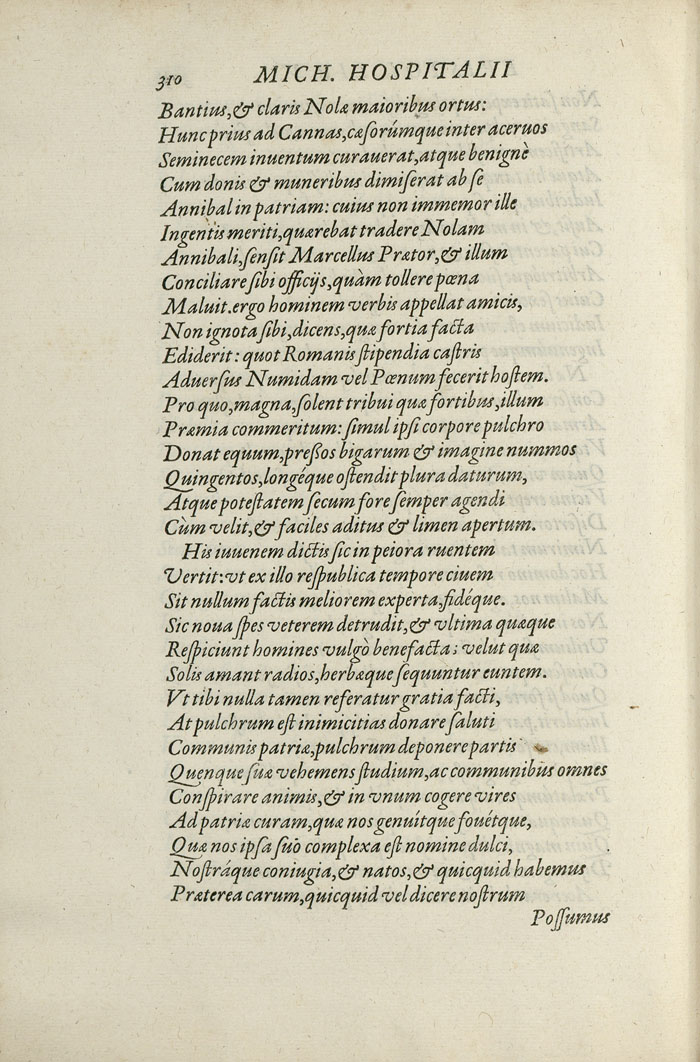 310 MICH. HOSPITALII
Bantius,& claris Nolæ maioribus ortus:
Hunc prius ad Cannas,cæsorúmque inter aceruos
Seminecem inuentum curauerat,atque benignè
Cum donis & muneribus dimiserat ab se
Annibal in patriam: cuius non immemor ille
Ingentis meriti,quærebat tradere Nolam
Annibali,sensit Marcellus Prætor,& illum
Conciliare sibi officijs,quàm tollere pœna
Maluit.ergo hominem verbis appellat amicis,
Non ignota sibi,dicens,quæ fortia facta
Ediderit: quot Romanis stipendia castris
Aduersus Numidam vel Pœnum fecerit hostem.
Pro quo,magna,solent tribui quæ fortibus,illum
Præmia commeritum: simul ipsi corpore pulchro
Donat equum,pressos bigarum & imagine nummos
Quingentos,longéque ostendit plura daturum,
Atque potestatem secum fore semper agendi
Cùm velit,& faciles aditus & limen apertum.
His iuuenem dictis sic in peiora ruentem
Vertit:vt ex illo respublica tempore ciuem
Sit nullum factis meliorem experta,fidéque.
Sic noua spes veterem detrudit,& vltima quæque
Respiciunt homines vulgò benefacta; velut quæ
Solis amant radios,herbæque sequuntur euntem.
Vt tibi nulla tamen referatur gratia facti,
At pulchrum est inimicitias donare saluti
Communis patriæ,pulchrum deponere partis
Quenque suæ vehemens studium,ac communibus omnes
Conspirare animis,& in vnum cogere vires
Ad patriæ curam,quæ nos genuítque fouétque,
Quæ nos ipsa suo complexa est nomine dulci,
Nostráque coniugia,& natos,& quicquid habemus
Præterea carum,quicquid vel dicere nostrum
Possumus